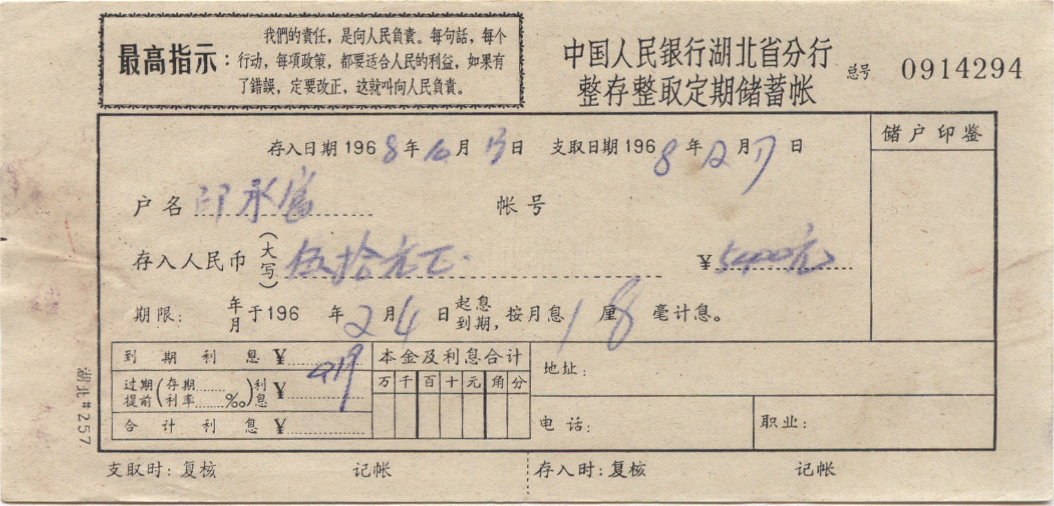 最高指示：
我們的責任，是向人民負責。每句話，每个
行动，每項政策，都要适合人民的利益，如果有
了錯誤，定要改正，这就叫向人民負責。
中国人民银行湖北省分行
整存整取定期储蓄帐
总号 0914294
存入日期1968年 月 日 支取日期1968年12月 日
储户印鉴
户名 印承富
帐号
存入人民币（大写）伍拾元正
¥5000元
期限：年月于196 年2月4日起息到期，按月息1厘8毫计息。
到期利息¥
过期提前（存期利率‰）利息¥
合计利息¥
本金及利息合计
万千百十元角分
地址：
电话：
职业：
支取时：复核 记帐
存入时：复核 记帐
湖北#257